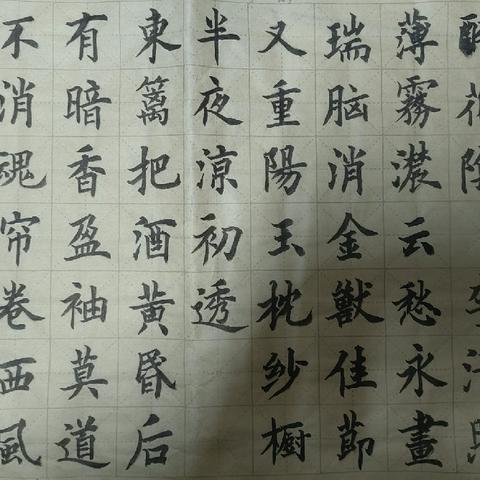 醉花陰
薄霧濃云愁永晝
瑞脑消金獸佳節
又重陽玉枕紗橱
半夜涼初透
東篱把酒黄昏后
有暗香盈袖莫道
不消魂帘卷西風